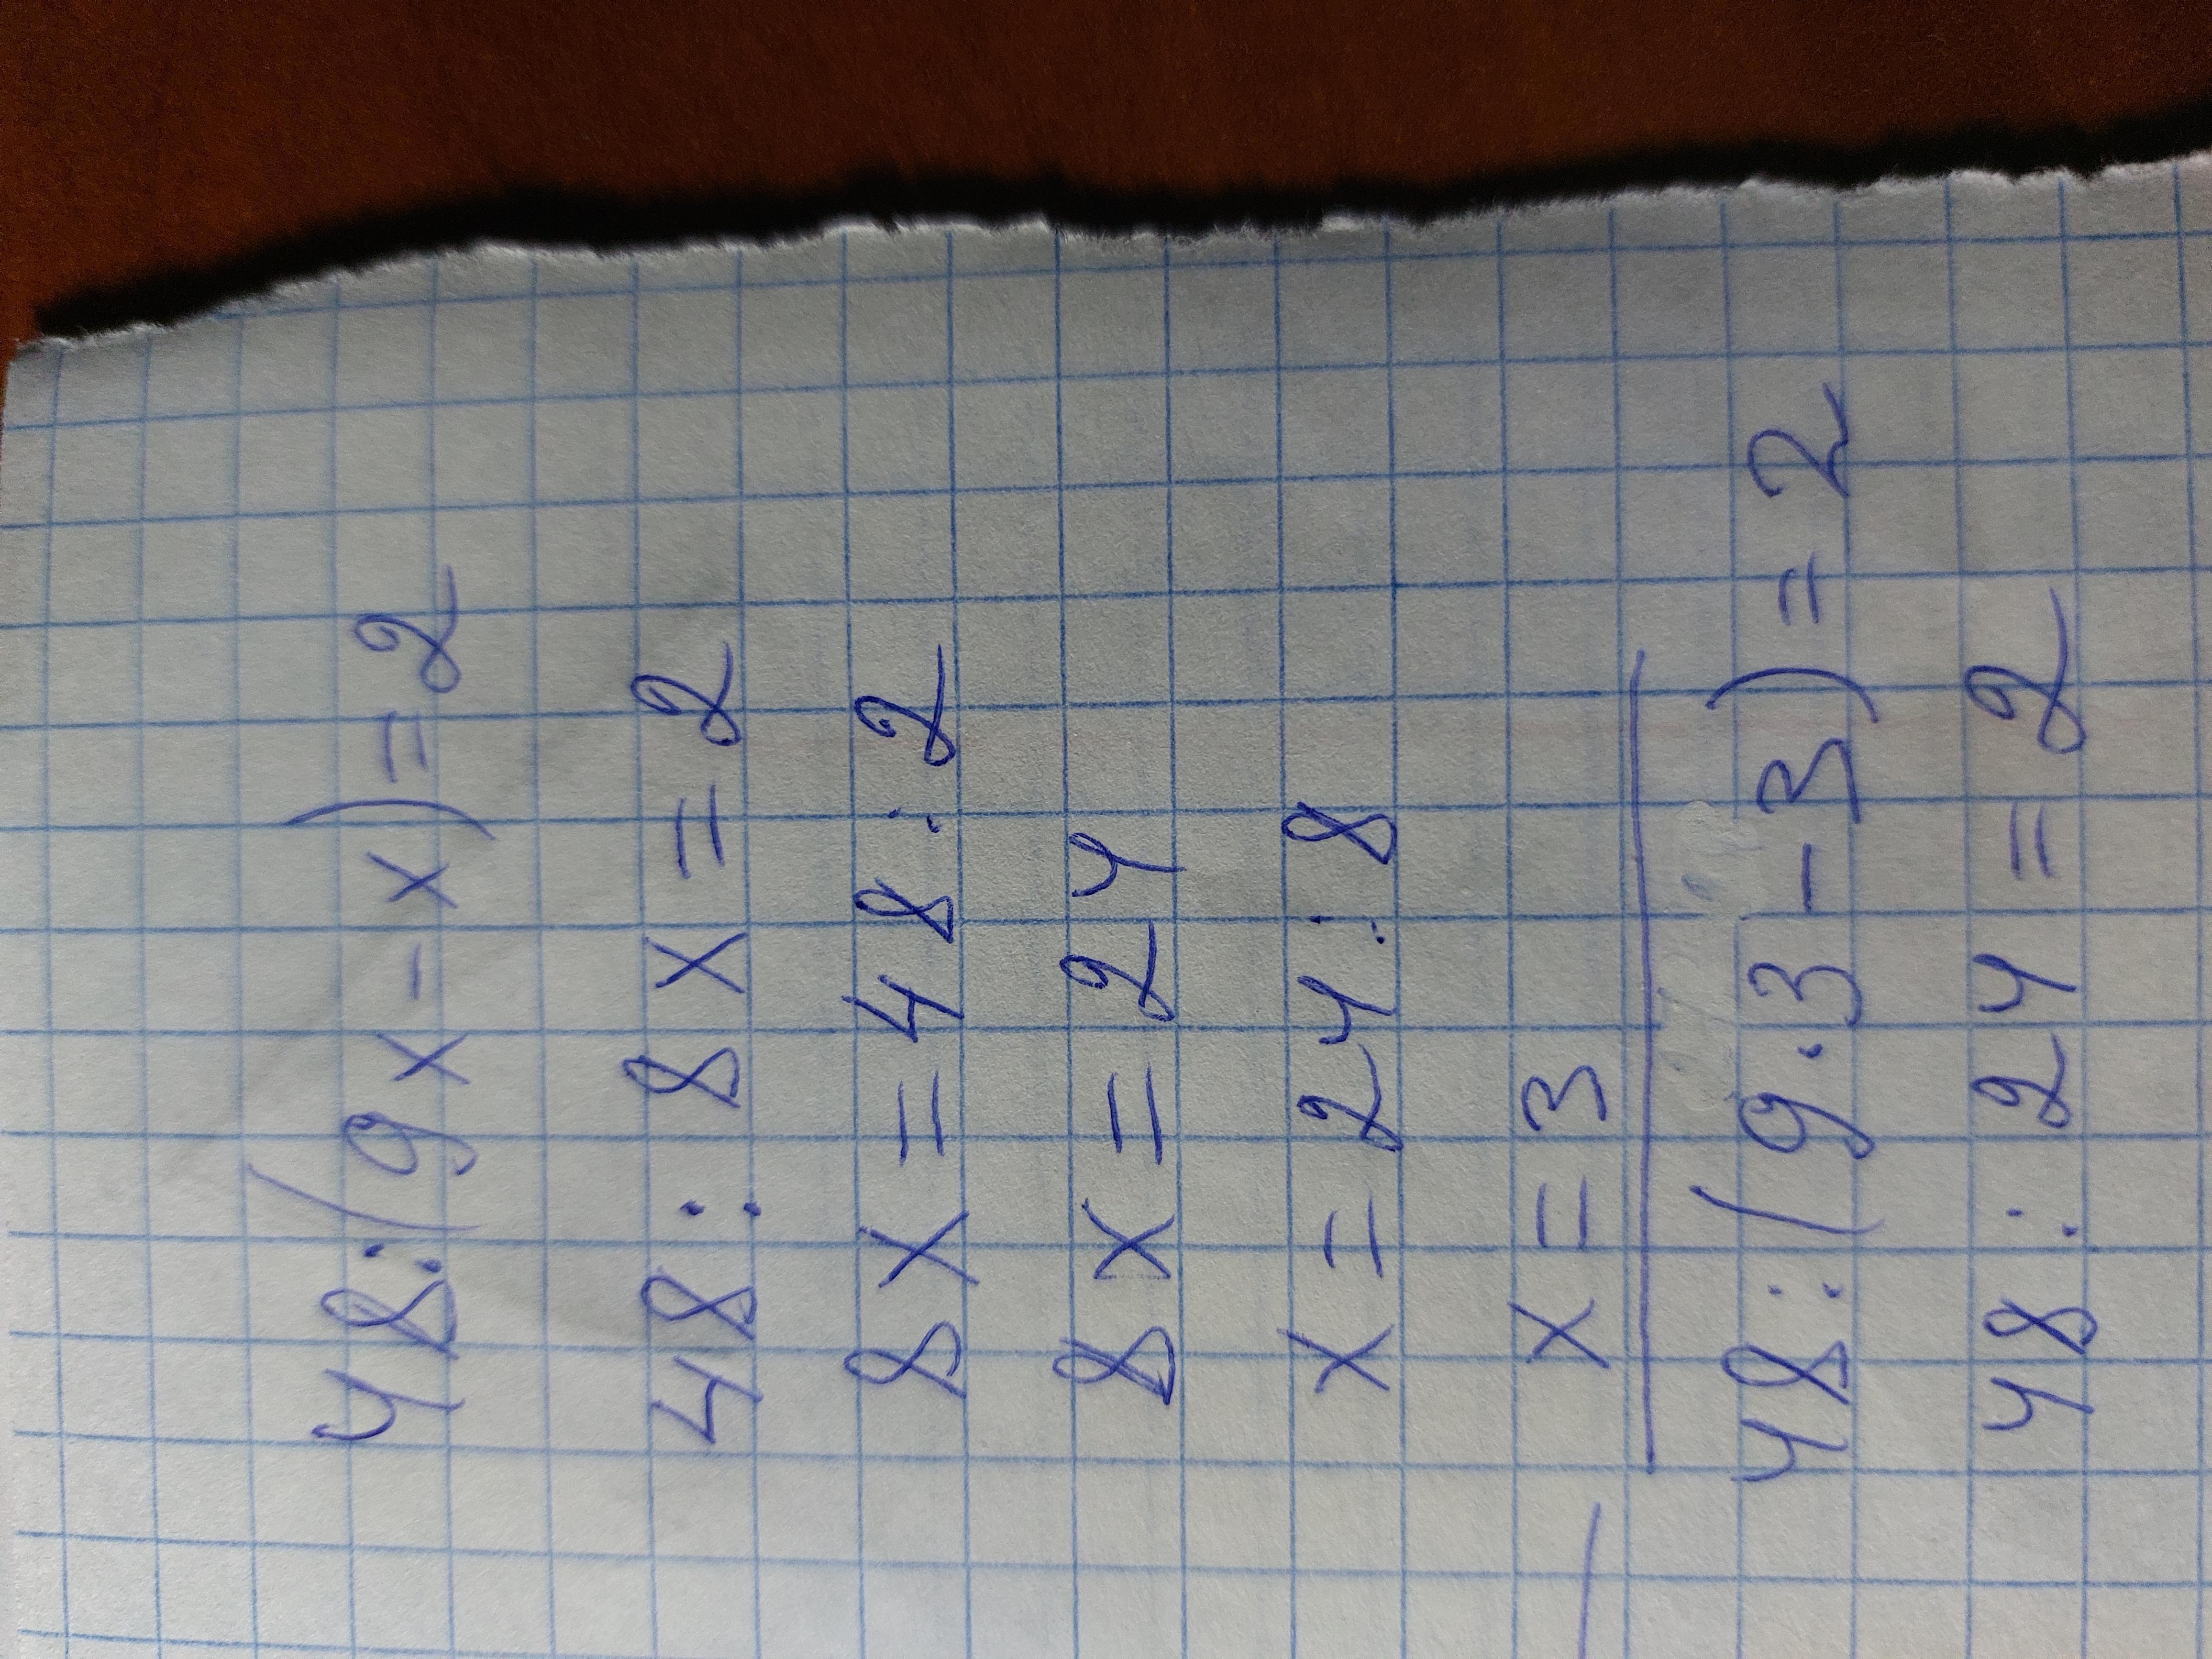 48:(9x-x)=2
48:8x=2
8x=48:2
8x=24
x=24:8
x=3
48:(9·3-3)=2
48:24=2